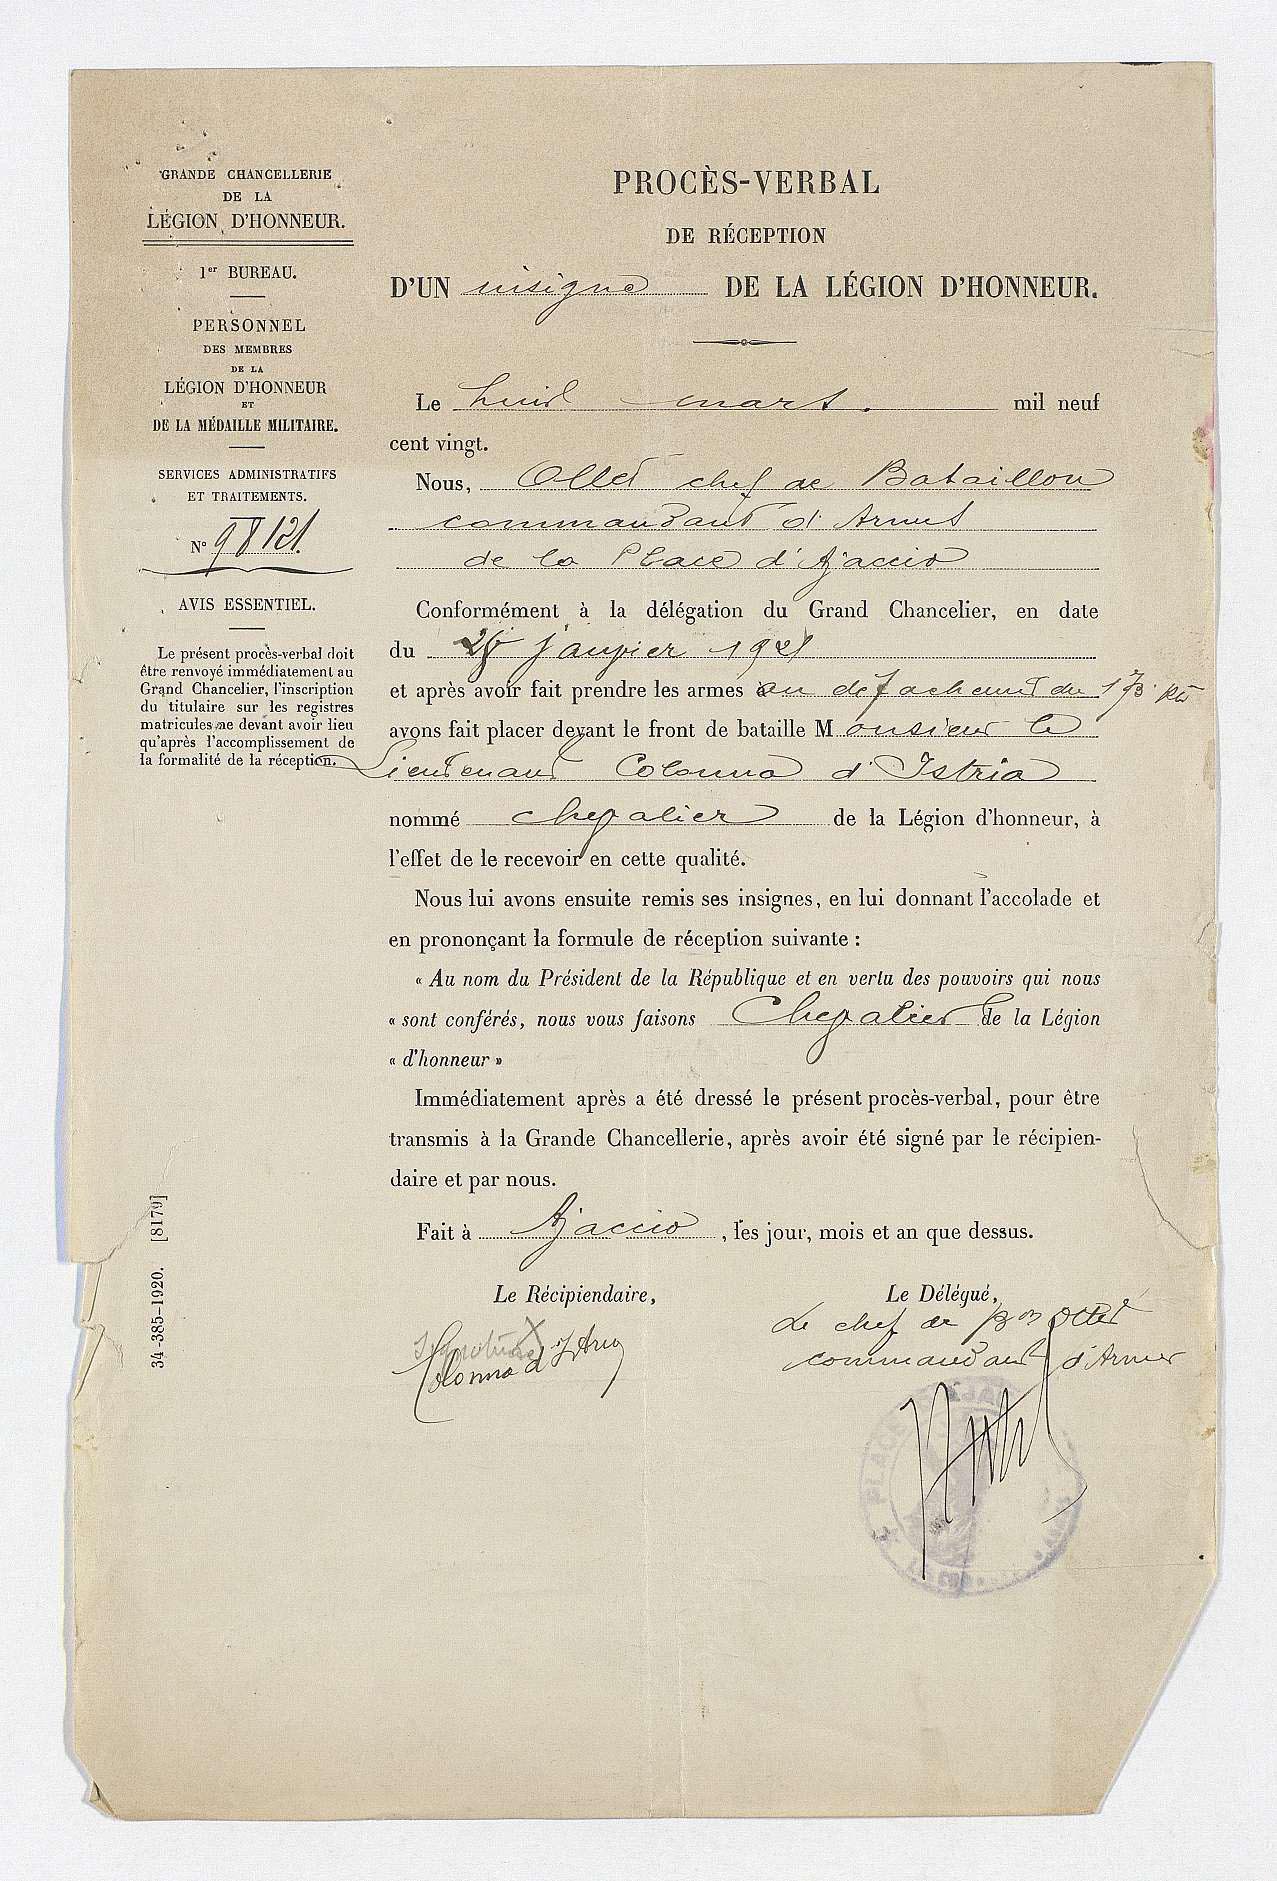 GRANDE CHANCELLERIE
DE LA
LÉGION D'HONNEUR.
1er BUREAU.
PERSONNEL
DES MEMBRES
DE LA
LÉGION D'HONNEUR
ET
DE LA MÉDAILLE MILITAIRE.
SERVICES ADMINISTRATIFS
ET TRAITEMENTS.
N° 98121
AVIS ESSENTIEL.
Le présent procès-verbal doit
être renvoyé immédiatement au
Grand Chancelier, l'inscription
du titulaire sur les registres
matricules ne devant avoir lieu
qu'après l'accomplissement de
la formalité de la réception.
34-385-1920. [8179]
PROCÈS-VERBAL
DE RÉCEPTION
D'UN insigne DE LA LÉGION D'HONNEUR.
Le huit mars. mil neuf
cent vingt.
Nous, chef de Bataillon
commandant d'Armes
de la Place d'Ajaccio
Conformément à la délégation du Grand Chancelier, en date
du janvier 1921
et après avoir fait prendre les armes au détachement du 173e
avons fait placer devant le front de bataille Monsieur le
Lieutenant Colonna d'Istria
nommé chevalier de la Légion d'honneur, à
l'effet de le recevoir en cette qualité.
Nous lui avons ensuite remis ses insignes, en lui donnant l'accolade et
en prononçant la formule de réception suivante :
« Au nom du Président de la République et en vertu des pouvoirs qui nous
« sont conférés, nous vous faisons Chevalier de la Légion
« d'honneur »
Immédiatement après a été dressé le présent procès-verbal, pour être
transmis à la Grande Chancellerie, après avoir été signé par le récipien-
daire et par nous.
Fait à Ajaccio, les jour, mois et an que dessus.
Le Récipiendaire,
Signature
Colonna d'Istria
Le Délégué,
Le chef de Bon
commandant d'Armes
PLACE